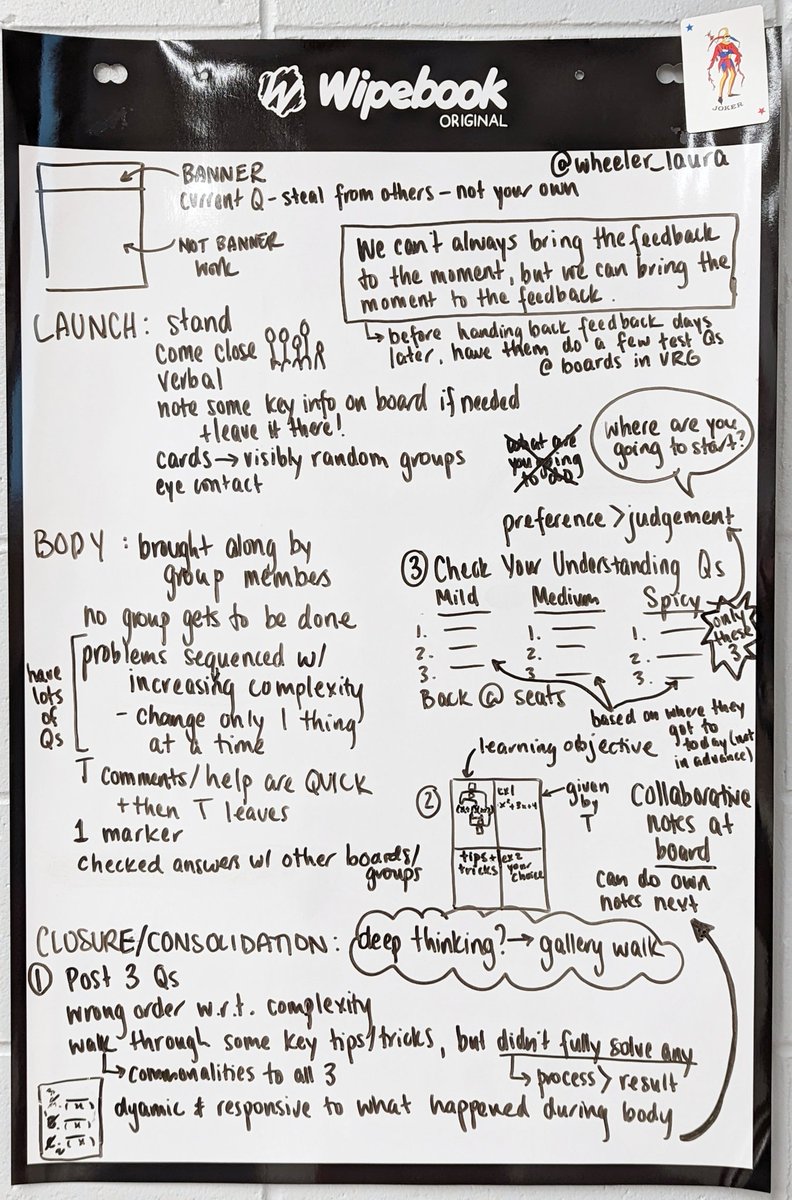 Wipebook
ORIGINAL
JOKER
@wheeler_laura
BANNER
current Q - steal from others - not your own
NOT BANNER
work
We can't always bring the feedback
to the moment, but we can bring the
moment to the feedback.
before handing back feedback days
later, have them do a few test Qs
@ boards in VRG
LAUNCH: stand
come close
verbal
note some key info on board if needed
+ leave it there!
cards → visibly random groups
eye contact
what are
you going
to do
where are you
going to start?
BODY: brought along by
group members
no group gets to be done
have
lots
of
Qs
problems sequenced w/
increasing complexity
- Change only 1 thing
at a time
T comments/help are QUICK
+ then T leaves
1 marker
checked answers w/ other boards/
groups
preference > judgement
③ Check Your Understanding Qs
Mild Medium Spicy
1. 1. 1.
2. 2. 2.
3. 3. 3.
only
these
3
Back @ seats
based on where they
got to
today (not
in advance)
learning objective
②
ex 1
x²+3x+4
tips+
tricks
ex 2
your
choice
given
by
T
collaborative
notes at
board
can do own
notes next
CLOSURE/CONSOLIDATION:
deep thinking? → gallery walk
① Post 3 Qs
wrong order w.r.t. complexity
walk through some key tips/tricks, but didn't fully solve any
commonalities to all 3
process > result
dyamic & responsive to what happened during body